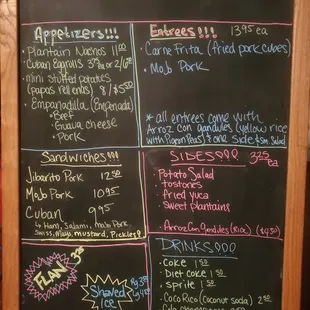 Appetizers!!!
Plantain Nachos 11.00
Cuban Eggrolls 3.50 ea or 2/6.50
mini stuffed potatoes
(papas rellenas) 8 / $5.00
Empanadilla (Empanada)
Beef
Guava cheese
Pork
Entrees!!! 13.95 ea
Carne Frita (fried pork cubes)
Mojo Pork
*all entrees come with
Arroz con gandules (yellow rice
with Pigeon Peas) & one side & sm Salad
Sandwiches!!!
Jibarito Pork 12.50
Mojo Pork 10.95
Cuban 9.95
Ham, Salami, Mojo Pork
Swiss, Mayo, mustard, Pickles
SIDES!!! 3.25 ea
Potato Salad
tostones
fried yuca
Sweet plantains
Arroz Con Gandules (Rice) ($4.50)
FLAN
Shaved
ICE
DRINKS!!!
Coke 1.50
Diet coke 1.50
Sprite 1.50
Coco Rico (Coconut soda) 2.50